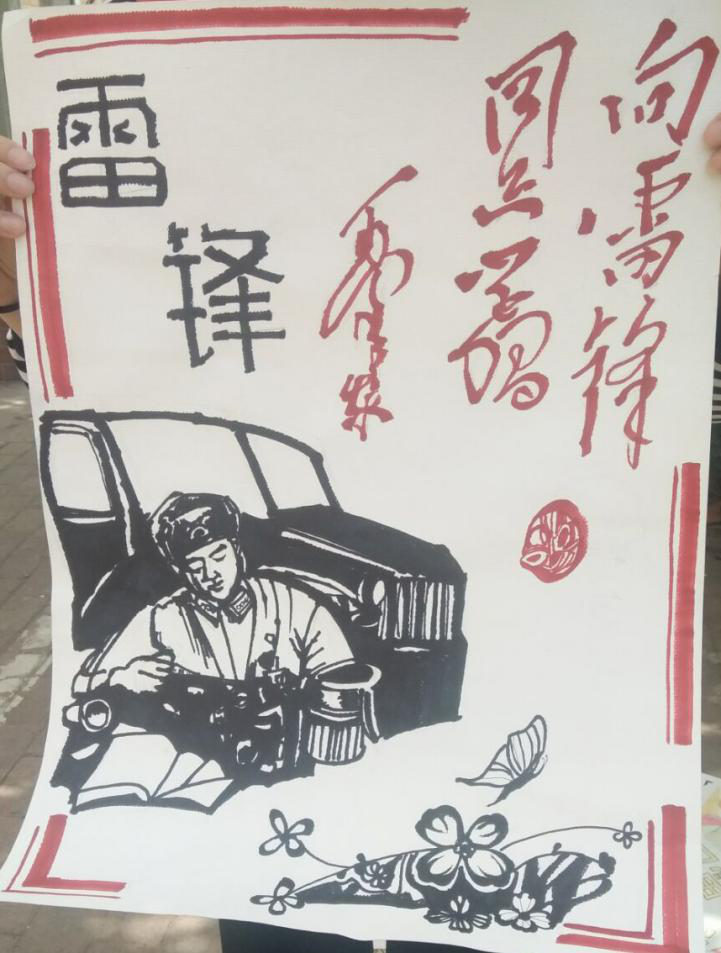 向雷锋
同志学习
毛泽东
雷锋